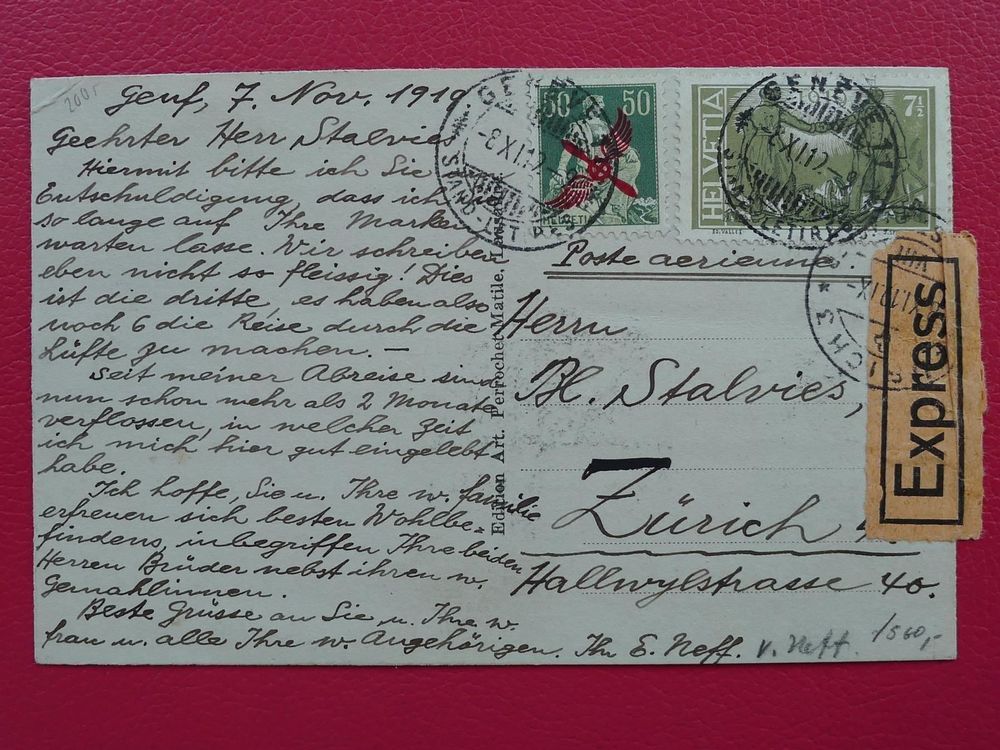 200.-
Genf, 7. Nov. 1919.
Geehrter Herr Stalvies
Hiermit bitte ich Sie
Entschuldigung, dass ich Sie
so lange auf Ihre Marken
warten lasse. Wir schreiben
eben nicht so fleissig! Dies
ist die dritte, es haben also
noch 6 die Reise durch die
Lüfte zu machen. —
Seit meiner Abreise sind
nun schon mehr als 2 Monate
verflossen, in welcher Zeit
ich mich hier gut eingelebt
habe.
Ich hoffe, Sie u. Ihre w. Familie
erfreuen sich besten Wohlbe-
findens, inbegriffen Ihre beiden
Herren Brüder nebst ihren w.
Gemahlinnen.
Beste Grüsse an Sie u. Ihre w.
Frau u. alle Ihre w. Angehörigen. Ihr E. Neff.
v. Neff.
1560,-
Edition Art. Perrochet-Matile,
50 50
HELVETIA
HELVETIA
7½
GENÈVE 1
-8.XI.12-
GENÈVE 1
8.XI.12-9
Poste aerienne.
Herrn
Bl. Stalvies,
Zürich
Hallwylstrasse 40.
Express